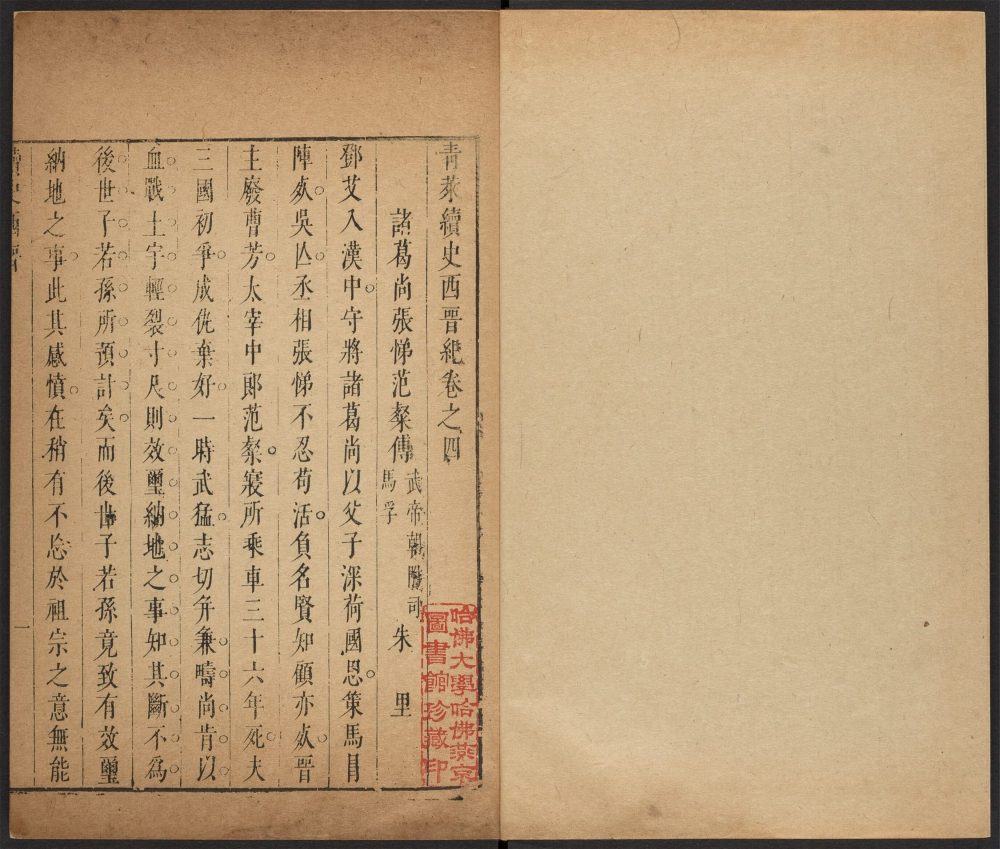 青來續史西晉紀卷之四
諸葛尚張悌范粲傳 武帝朝 司馬孚 朱 里
鄧艾入漢中守將諸葛尚以父子深荷國恩策馬冒
陣死吳亾丞相張悌不忍苟活負名賢知顧亦死晉
主廢曹芳太宰中郞范粲寢所乘車三十六年死夫
三國初爭成仇棄好一時武猛志切幷兼疇尚肯以
血戰土宇輕裂寸尺則效璽納地之事知其斷不爲
後世子若孫所預計矣而後世子若孫竟致有效璽
納地之事此其感憤在稍有不忘於祖宗之意無能
哈佛大學哈佛燕京
圖書館珍藏印
一